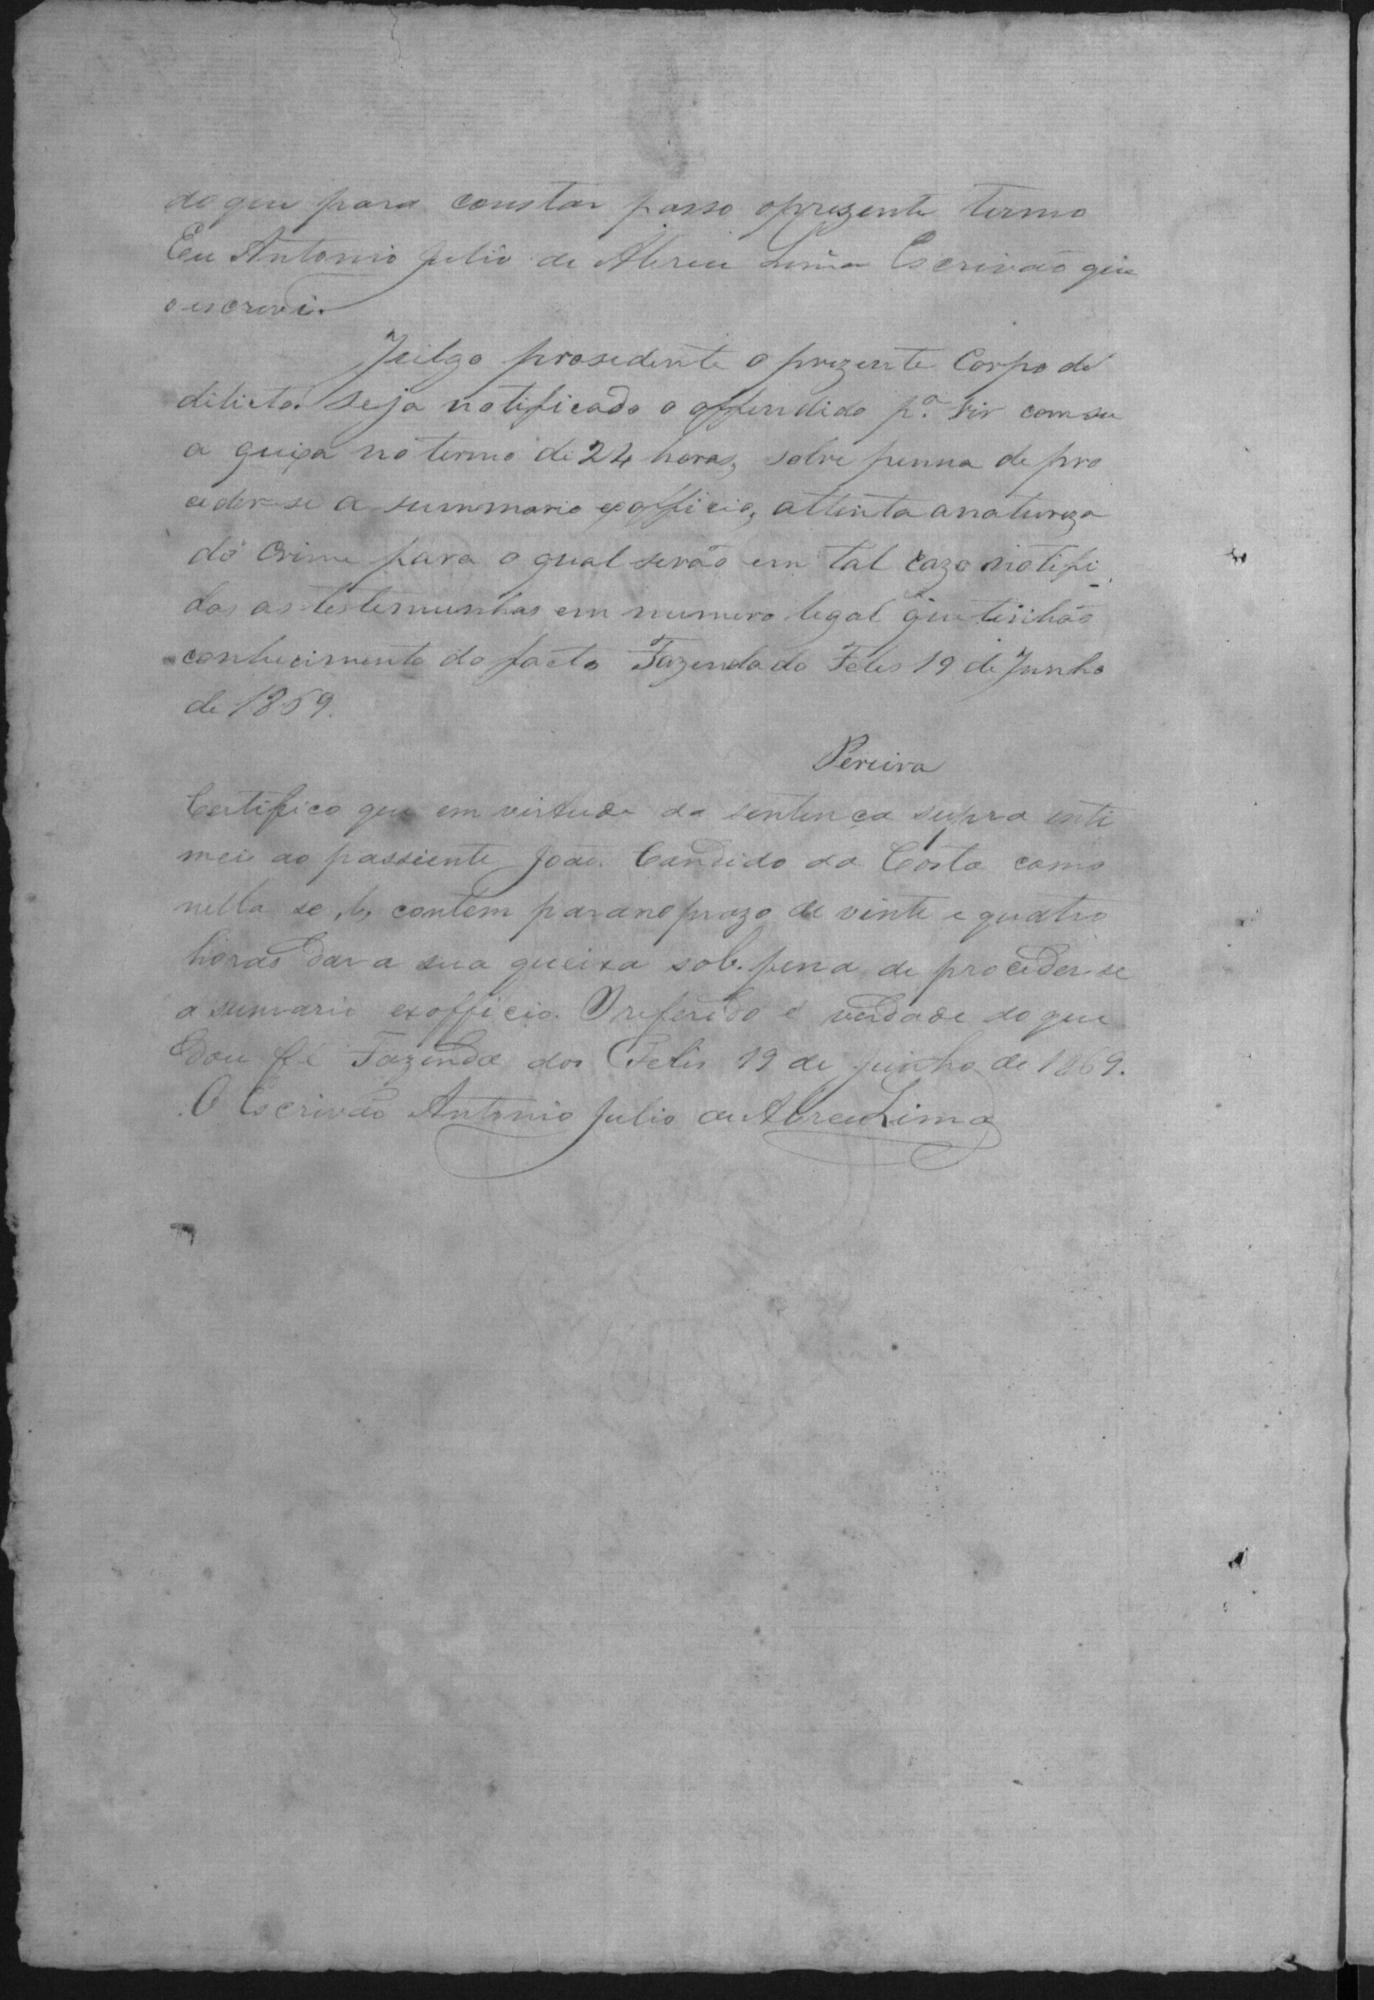 do que para constar passo opresente termo
Eu Antonio Julio de Abreu Lima Escrivão que
o escrevi.
Julgo prosedente o prezente Corpo de
dilicto. Seja notificado o offendido p.ª vir com su
a queixa no termo de 24 horas, sobre penna de pro
ceder-se a summario exofficio, attenta a natureza
do Crime para o qual serão em tal cazo notifi
das as testemunhas em numero legal que tinhão
conhecimento do facto Fazenda do Felis 19 de Junho
de 1869.
Pereira
Certifico que em virtude da sentença supra enti
mei ao passiente João Candido da Costa como
nella se contem para no prazo de vinte e quatro
horas dar a sua queixa sob pena de proceder-se
a sumario exofficio. O referido é verdade do que
Dou fé Fazenda dos Felis 19 de Junho de 1869.
O Escrivão Antonio Julio de Abreu Lima